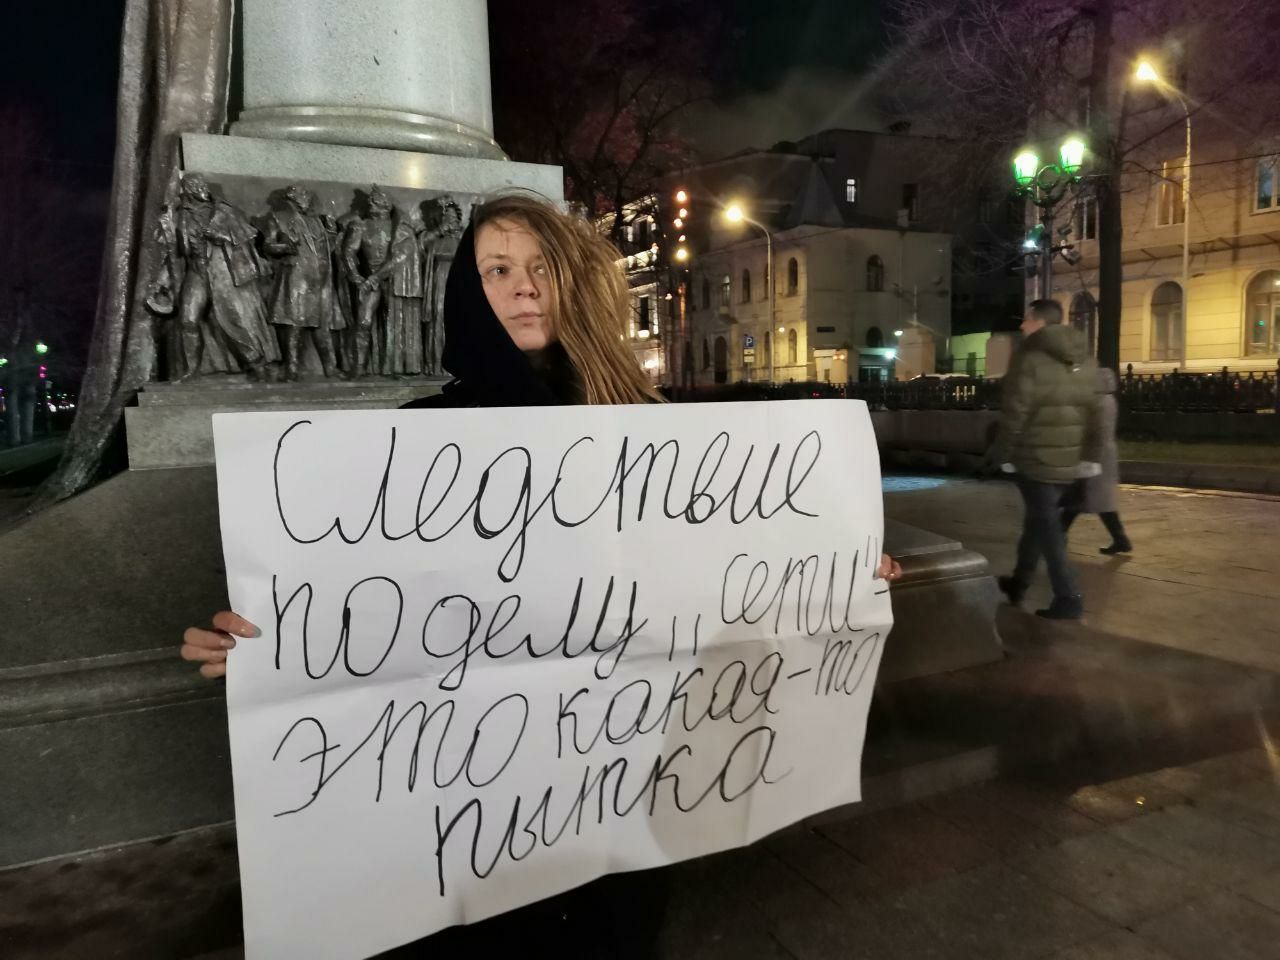 Следствие
по делу „сети"-
это какая-то
пытка
P